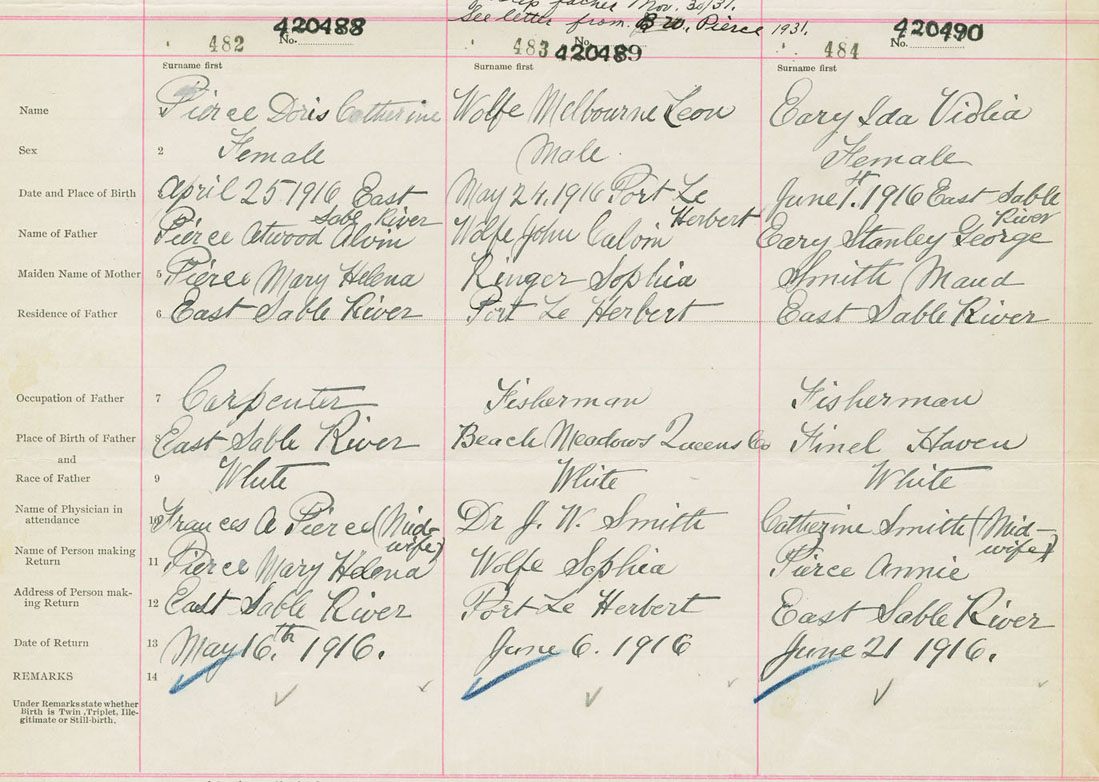 father Nov. 30/31.
See letter from B W. Pierce 1931.
420488 420490
482 No. 483 No. 420489 484 No.
Surname first Surname first Surname first
Name Pierce Doris Catherine Wolfe Melbourne Leon Eary Ida Vidlia
Sex 2 Female Male Female
Date and Place of Birth April 25 1916 East May 24, 1916 Port Le June 1st. 1916 East Sable
Sable River Herbert River
Name of Father Pierce Atwood Alvin Wolfe John Calvin Eary Stanley George
Maiden Name of Mother 5 Pierce Mary Helena Ringer Sophia Smith Maud
Residence of Father 6 East Sable River Port Le Herbert East Sable River
Occupation of Father 7 Carpenter Fisherman Fisherman
Place of Birth of Father 8 East Sable River Beach Meadows Queens Co Finel Haven
and
Race of Father 9 White White White
Name of Physician in
attendance 10 Frances A Pierce (Mid- Dr J. W. Smith Catherine Smith (Mid-
wife) wife)
Name of Person making
Return 11 Pierce Mary Helena Wolfe Sophia Pierce Annie
Address of Person mak-
ing Return 12 East Sable River Port Le Herbert East Sable River
Date of Return 13 May 16th. 1916. June 6. 1916 June 21 1916.
REMARKS 14
Under Remarks state whether
Birth is Twin, Triplet, Ille-
gitimate or Still-birth.